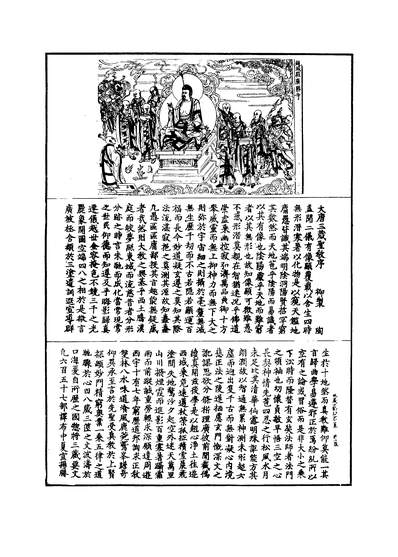 大唐三藏聖教序 御製 陶
蓋聞二儀有像顯覆載以含生四時
無形潛寒暑以化物是以窺天鑑地
庸愚皆識其端明陰洞陽賢哲罕窮
其數然而天地苞乎陰陽而易識者
以其有像也陰陽處乎天地而難窮
者以其無形也故知像顯可徵雖愚
不惑形潛莫覩在智猶迷況乎佛道
崇虛乘幽控寂弘濟萬品典御十方
舉威靈而無上抑神力而無下大之
則彌於宇宙細之則攝於毫釐無滅
無生歷千劫而不古若隱若顯運百
福而長今妙道凝玄遵之莫知其際
法流湛寂挹之莫測其源故知蠢蠢
凡愚區區庸鄙投其旨趣能無疑惑
者哉然則大教之興基乎西土騰漢
庭而皎夢照東域而流慈昔者分形
分跡之時言未馳而成化當常現常
之世民仰德而知遵及乎晦影歸真
遷儀越世金容掩色不鏡三千之光
麗象開圖空端四八之相於是微言
廣被拯含類於三塗遺訓遐宣導群
生於十地然而真教難仰莫能一其
旨歸曲學易遵邪正於焉紛糺所以
空有之論或習俗而是非大小之乘
乍沿時而隆替有玄奘法師者法門
之領袖也幼懷貞敏早悟三空之心
長契神情先苞四忍之行松風水月
未足比其清華仙露明珠詎能方其
朗潤故以智通無累神測未形超六
塵而迥出隻千古而無對凝心內境
悲正法之陵遲栖慮玄門慨深文之
訛謬思欲分條析理廣彼前聞截偽
續真開茲後學是以翹心淨土往遊
西域乘危遠邁杖策孤征積雪晨飛
塗間失地驚沙夕起空外迷天萬里
山川撥煙霞而進影百重寒暑躡霜
雨而前蹤誠重勞輕求深願達周遊
西宇十有七年窮歷道邦詢求正教
雙林八水味道湌風鹿菀鷲峯瞻奇
仰異承至言於先聖受真教於上賢
探賾妙門精窮奧業一乘五律之道
馳驟於心田八藏三篋之文波濤於
口海爰自所歷之國總將三藏要文
凡六百五十七部譯布中夏宣揚勝